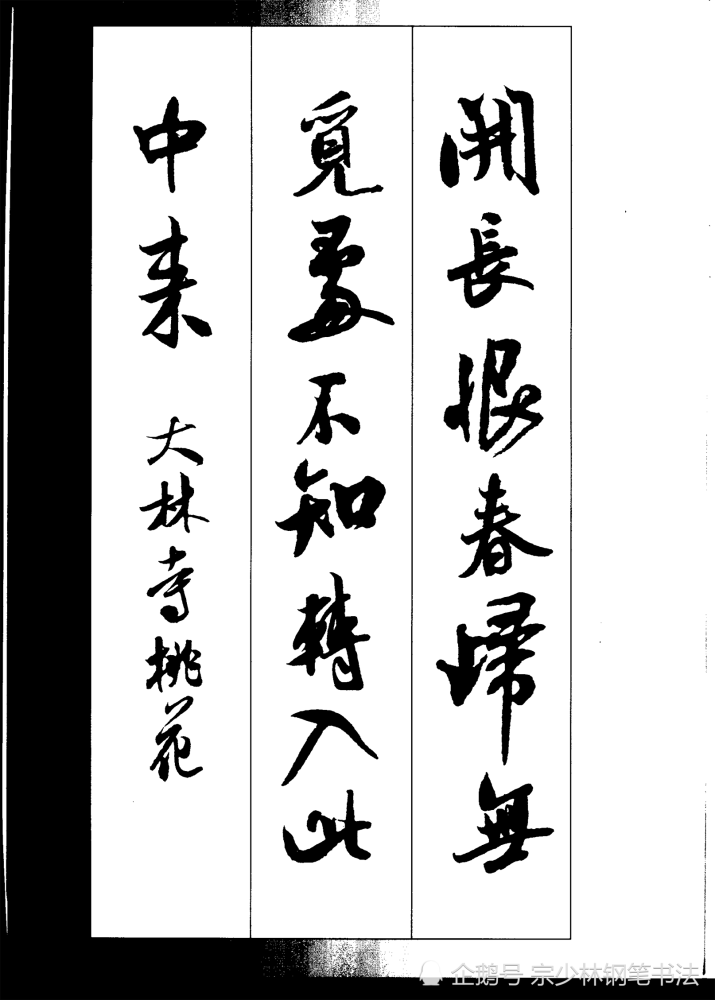 開長恨春歸無
覓處不知轉入此
中来
大林寺桃花
企鹅号 宗少林钢笔书法